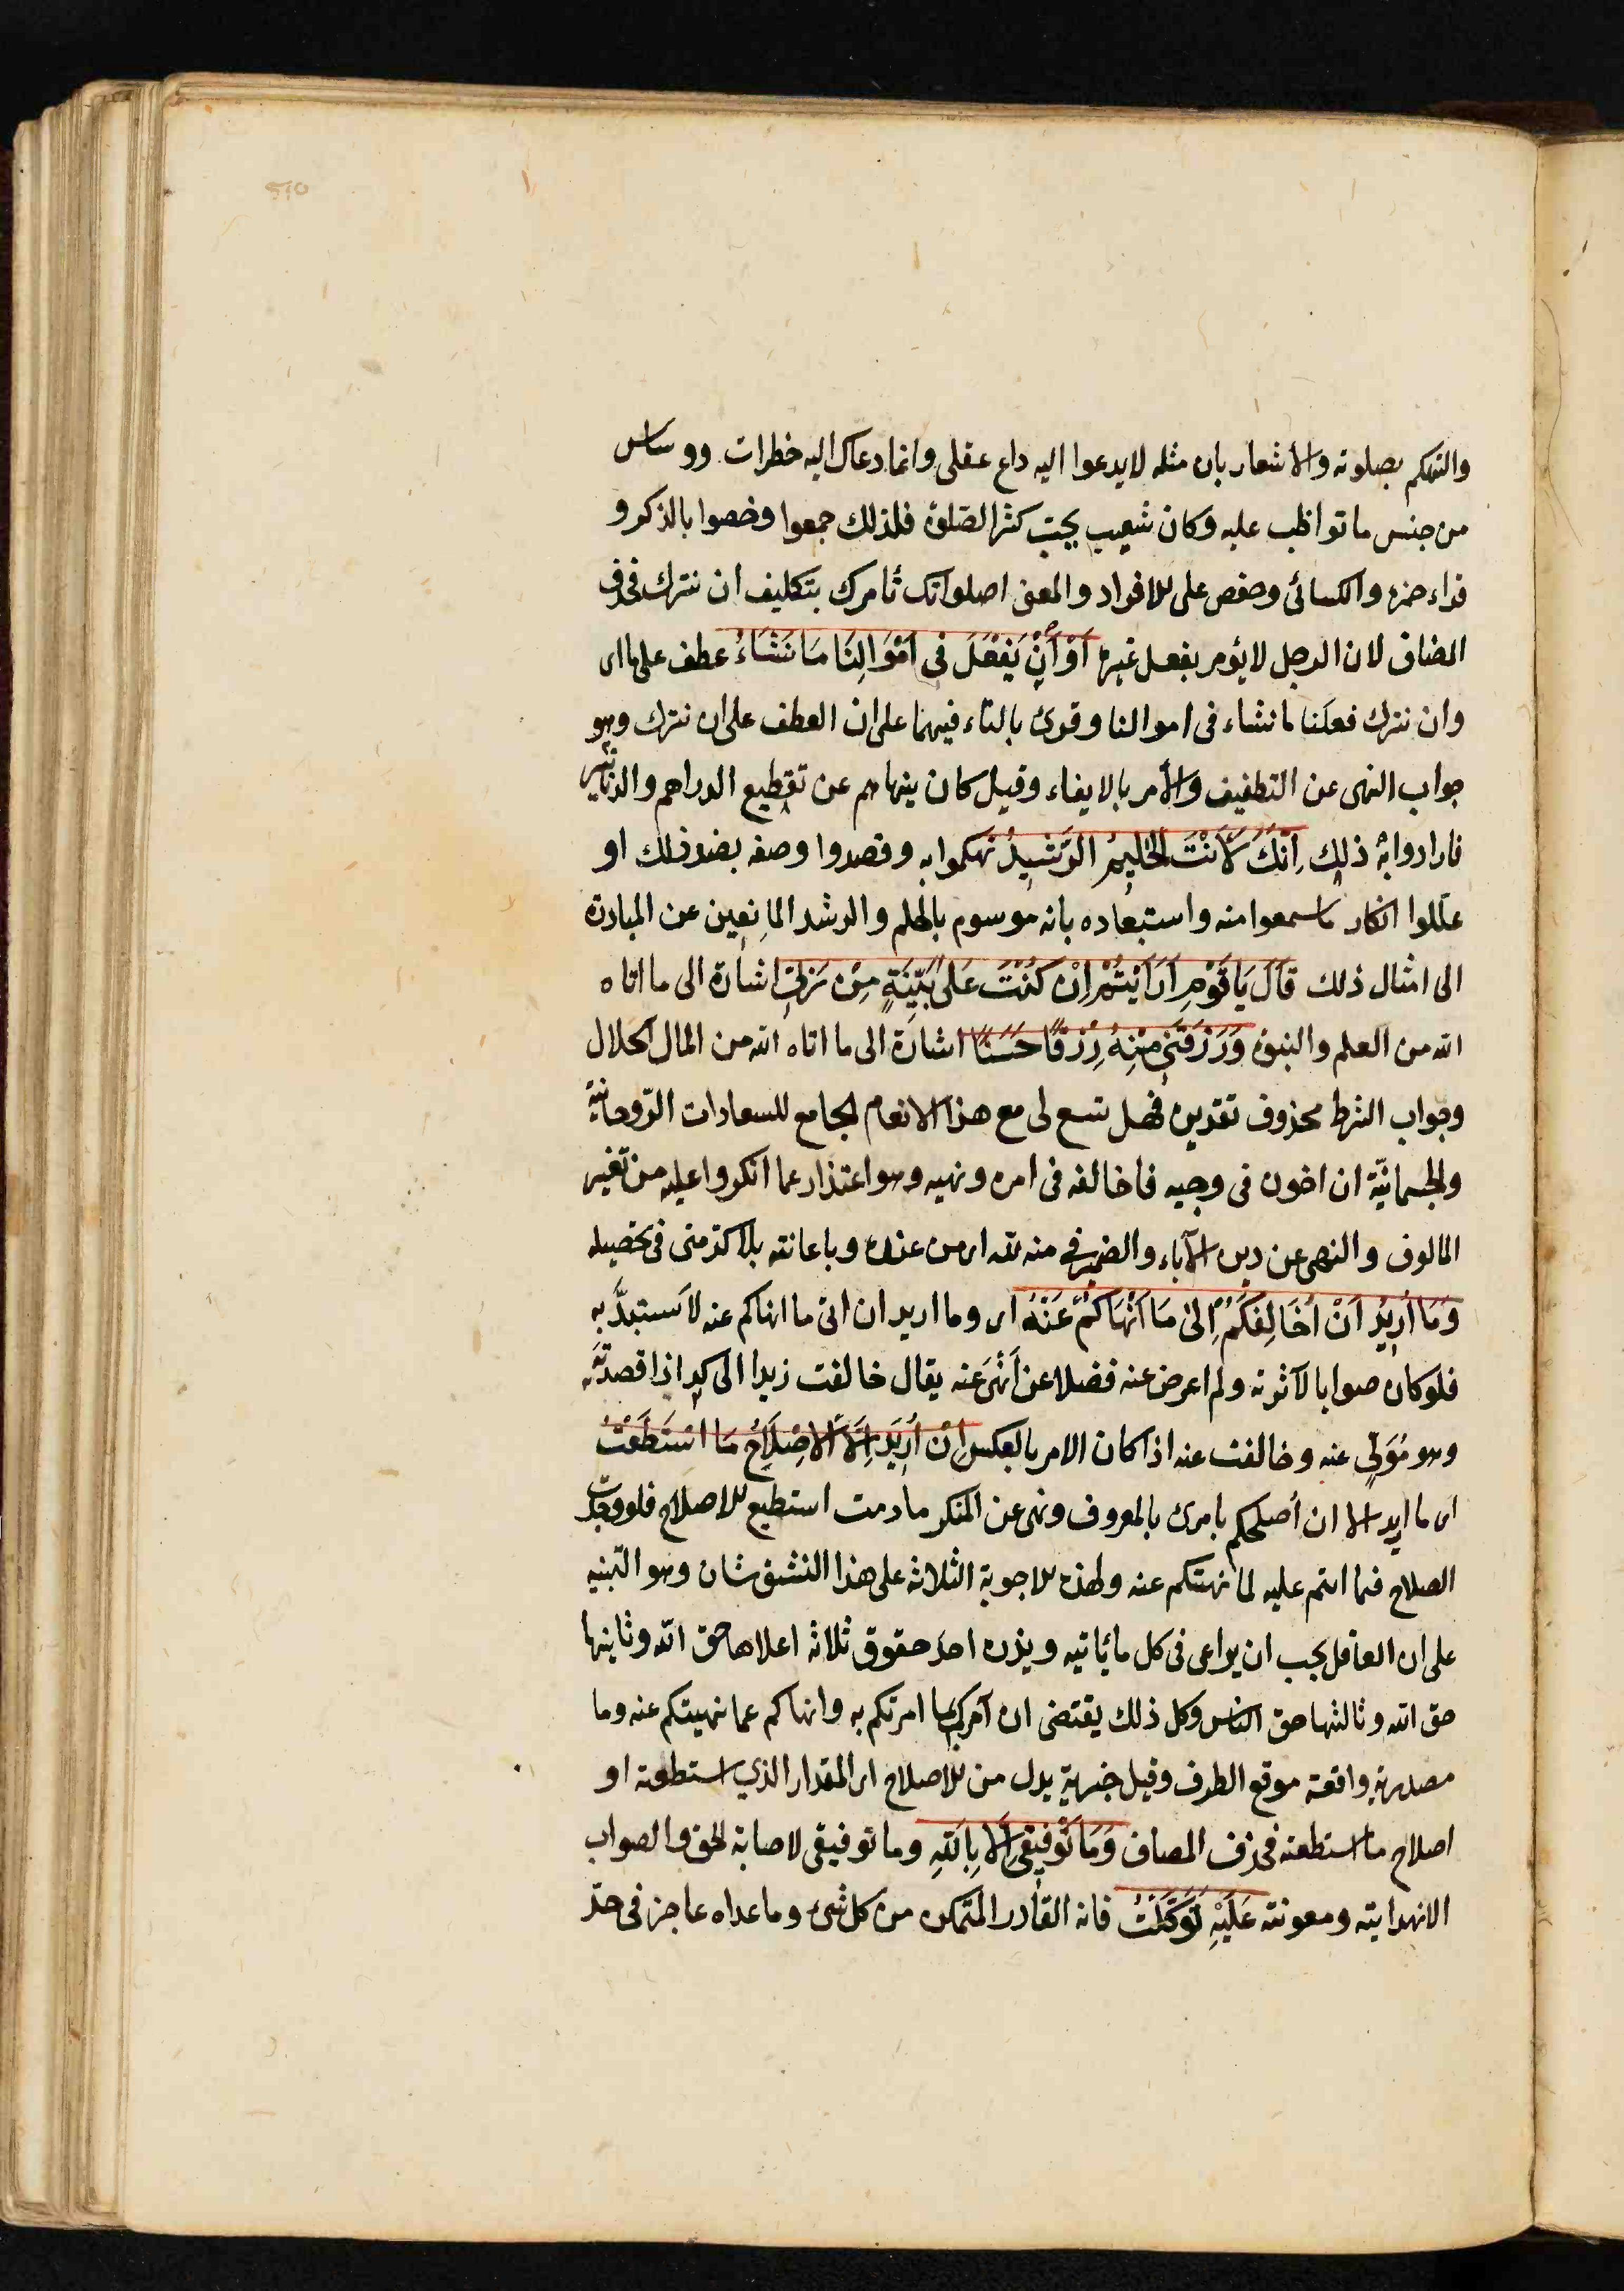 والتهكم بصلوته والاشعار بان مثله لا يدعوا اليه داع عقلى وانما دعاك اليه خطرات ووساس
من جنس ما تواظب عليه وكان شعيب كثر الصلوة فلذلك جمعوا وخصوا بالذكر و
قراء حمزه والكسائى وحفص على الافراد والمعنى اصلواتك تأمرك بتكليف ان نترك فحذف
المضاف لان الرجل لا يؤمر بفعل غيره أَوْ أَنْ نَفْعَلَ فى اَمْوَالِنَا مَا نَشَاءُ عطف على ما اى
وان نترك فعلنا ما نشاء فى اموالنا وقرئ بالتاء فيهما على ان العطف على ان نترك وهو
جواب النهى عن التطفيف والأمر بالايفاء وقيل كان ينهاهم عن تقطيع الدراهم والدنانير
فارادوا به ذلك اِنَّكَ لَأَنْتَ الْحَلِيمُ الرَّشِيدُ تهكموا به وقصدوا وصفه بضد ذلك او
عللوا انكار ما سمعوا منه واستبعاده بانه موسوم بالحلم والرشد المانعين عن المبادرة
الى امثال ذلك قَالَ يَا قَوْمِ اَرَاَيْتُمْ اِنْ كُنْتُ عَلَى بَيِّنَةٍ مِنْ رَبِّى اشارة الى ما اتاه
الله من العلم والنبوة وَرَزَقَنِى مِنْهُ رِزْقًا حَسَنًا اشارة الى ما اتاه الله من المال الحلال
وجواب الشرط محذوف تقديره فهل تسع لى مع هذا الانعام الجامع للسعادات الروحانية
والجسمانيّة ان اخون فى وحيه فاخالفه فى امره ونهيه وهو اعتذار عما انكروا عليه من تغيير
المالوف والنهى عن دين الآباء والضمير فى منه لله اى من عنده وباعانته بلا كد منى فى تحصيله
وَمَا اُرِيدُ اَنْ اُخَالِفَكُمْ اِلىٰ مَا اَنْهَاكُمْ عَنْهُ اى وما اريد ان اتى ما انهاكم عنه لاستبدَّ به
فلو كان صوابا لآثرته ولم اعرض عنه فضلا عن أنهى عنه يقال خالفت زيدا الى كذا اذا قصدته
وهو مُوَلٍّ عنه وخالفت عنه اذا كان الامر بالعكس اِنْ اُرِيدُ اِلَّا الْاِصْلَاحَ مَا اسْتَطَعْتُ
اى ما اريد الا ان أصلحكم بامرى بالمعروف ونهى عن المنكر ما دمت استطيع الاصلاح فلو وجدت
الصلاح فيما انتم عليه لما نهيتكم عنه ولهذه الاجوبة الثلاثه على هذا النسق شان وهو التنبيه
على ان العاقل يجب ان يراعى فى كل ما ياتيه ويذره احد حقوق ثلاثه اعلاها حق الله وثانيها
حق الله وثالثها حق الناس وكل ذلك يقتضى ان آمركم بما امرتكم به وانهاكم عما نهيتكم عنه وما
مصدرية واقعة موقع الظرف وقيل خبرية بدل من الاصلاح اى المقدار الذي استطعته او
اصلاح ما استطعته فحذف المضاف وَمَا تَوْفِيقِى اِلَّا بِاللهِ وما توفيقى لاصابة الحق والصواب
الا بهدايته ومعونته عَلَيْهِ تَوَكَّلْتُ فانه القادر المتمكن من كل شئ وما عداه عاجز فى حدّ